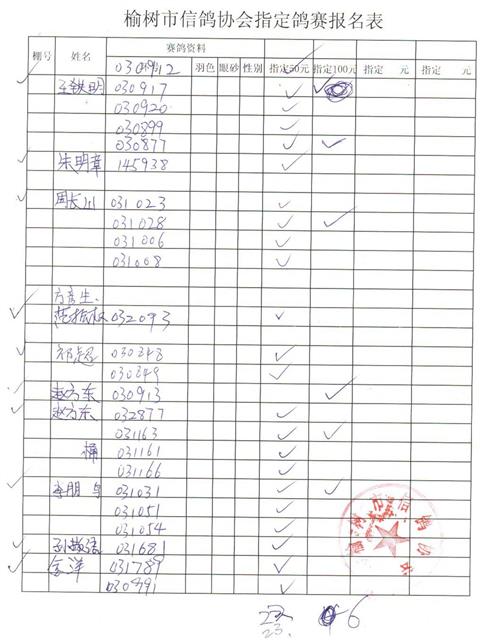 榆树市信鸽协会指定鸽赛报名表
棚号 姓名 赛鸽资料
030912 羽色 眼砂 性别 指定50元 指定100元 指定 元 指定 元
王铁明 030917
030920
030899
030877
朱明章 145938
周长川 031023
031028
031006
031008
032093
030248
030249
赵方东 030913
赵方东 032877
031163
桶 031161
031166
031031
031051
031054
031681
金洋 031789
23. 6